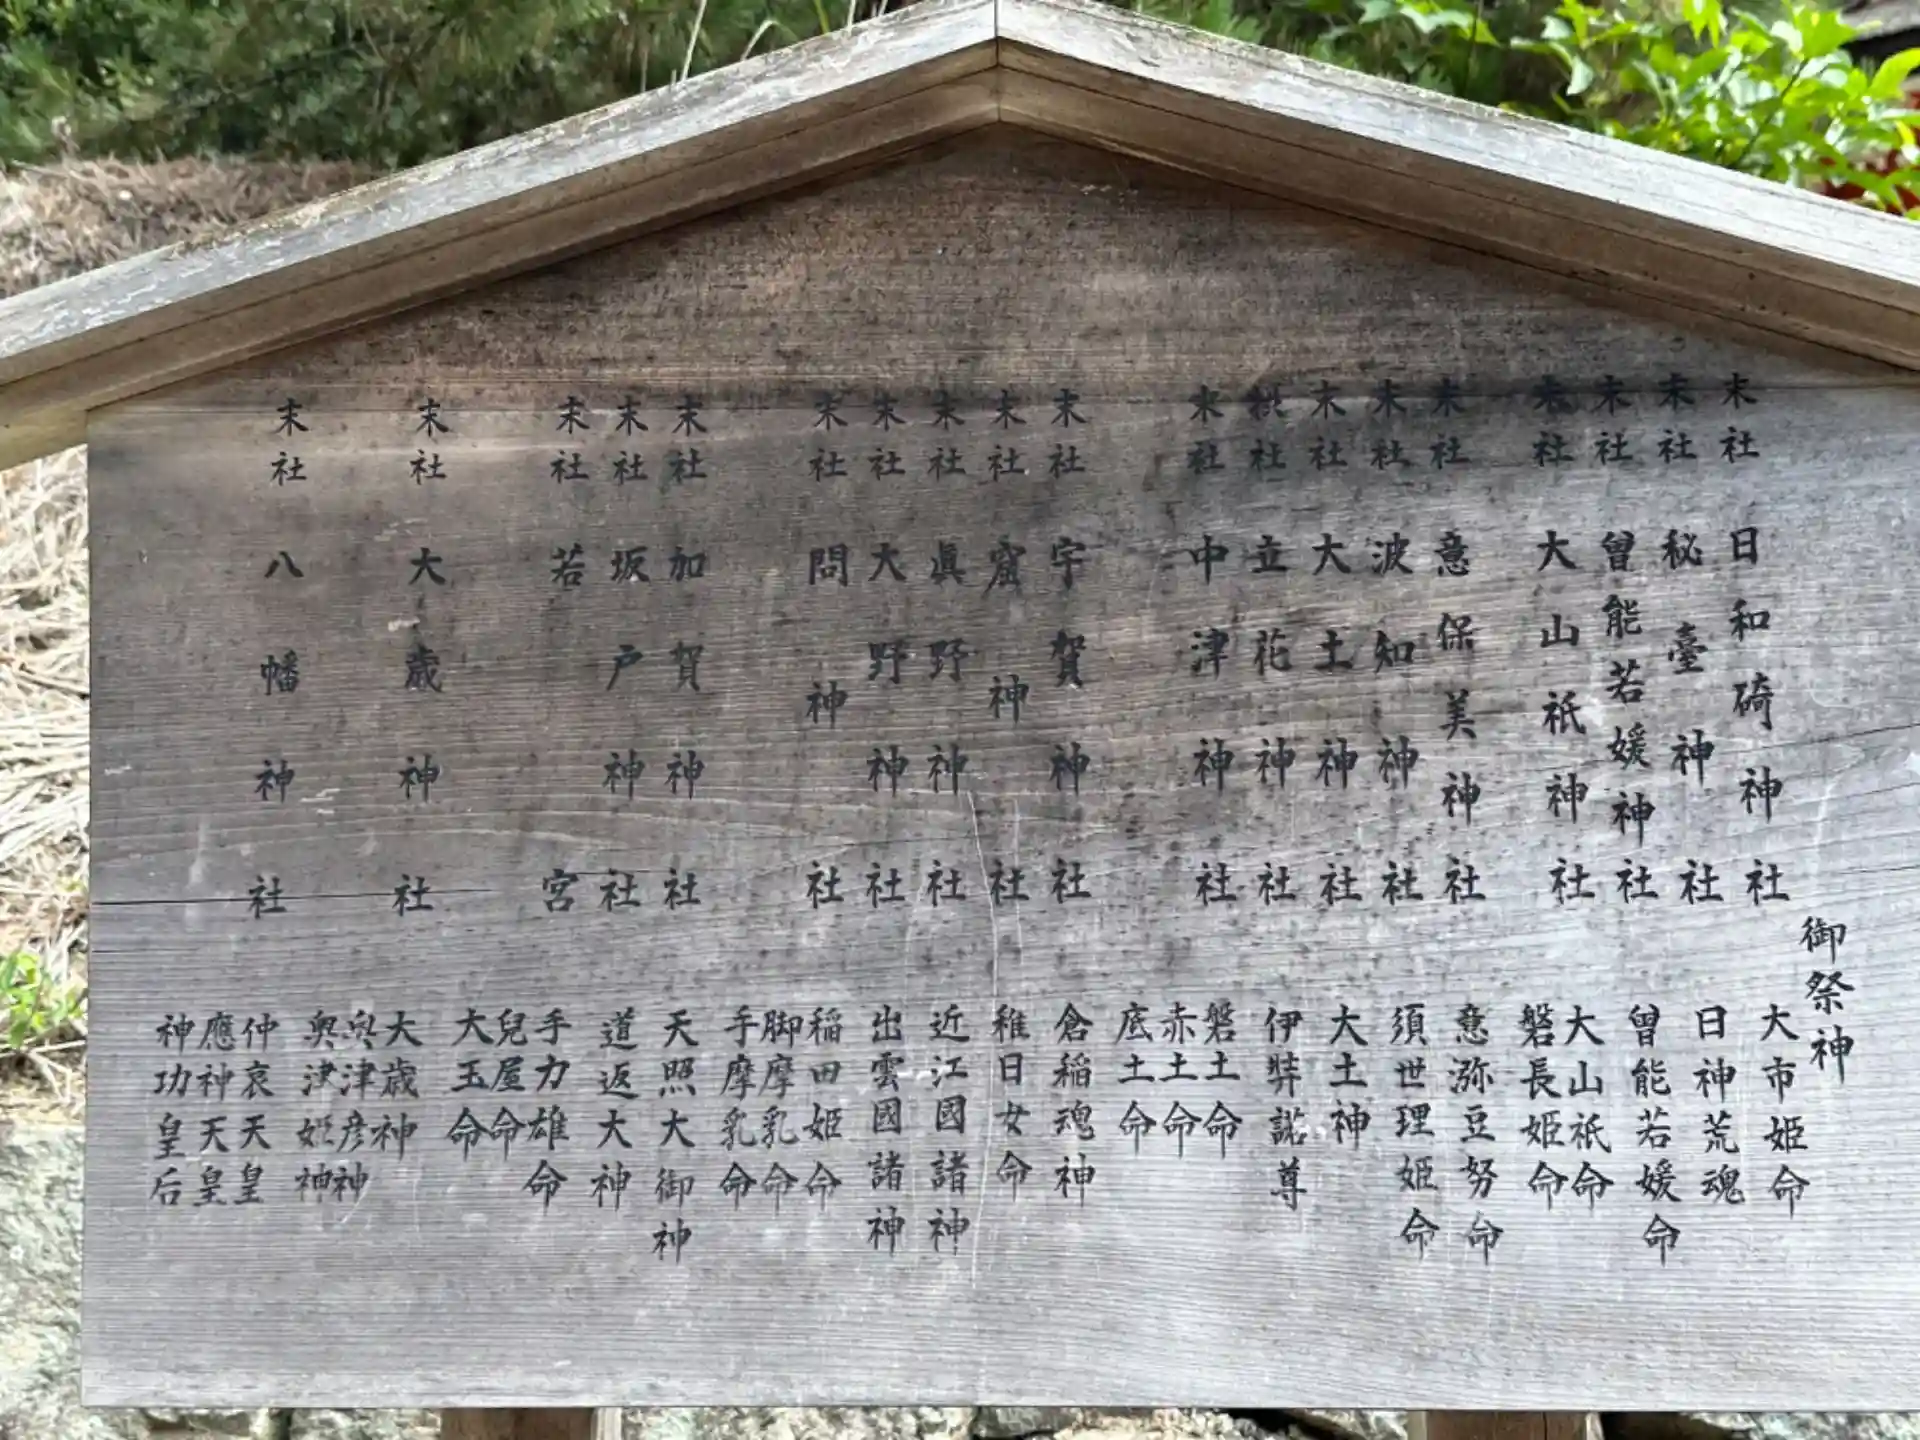 御祭神
末社 日和碕神社 大市姫命
末社 秘臺神社 日神荒魂
末社 曾能若媛神社 曾能若媛命
末社 大山祇神社 大山祇命
磐長姫命
末社 意保美神社 意弥豆努命
末社 波知神社 須世理姫命
末社 大土神社 大土神
社 立花神社 伊弉諾尊
末社 中津神社 磐土命
赤土命
底土命
末社 宇賀神社 倉稲魂神
末社 窟神社 稚日女命
末社 眞野神社 近江國諸神
末社 大野神社 出雲國諸神
末社 問神社 稲田姫命
脚摩乳命
手摩乳命
末社 加賀神社 天照大御神
末社 坂戸神社 道返大神
末社 若宮 手力雄命
兒屋命
大玉命
末社 大歳神社 大歳神
奥津彦神
奥津姫神
末社 八幡神社 仲哀天皇
應神天皇
神功皇后